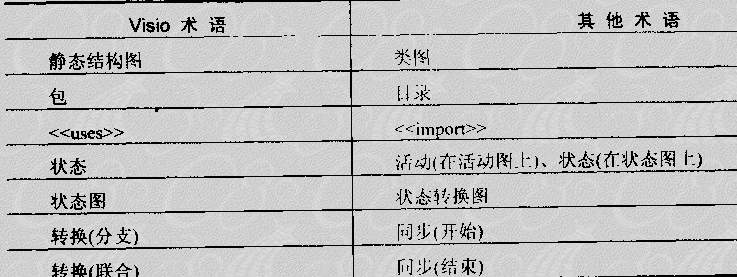 Visio 术语 其他术语
静态结构图 类图
包 目录
<<uses>> <<import>>
状态 活动(在活动图上)、状态(在状态图上)
状态图 状态转换图
转换(分支) 同步(开始)
转换(联合) 同步(结束)